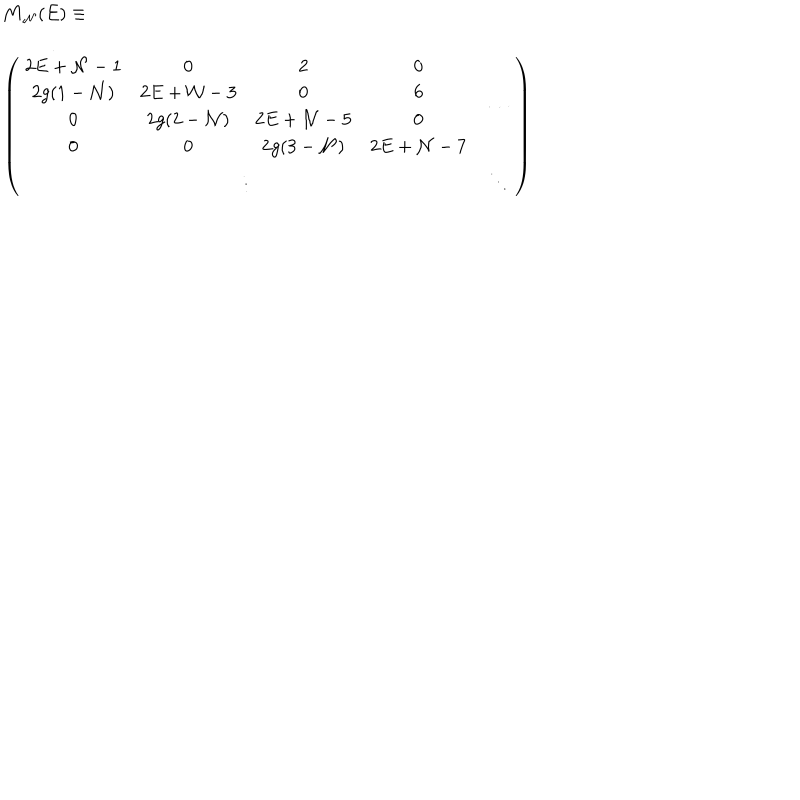 M𝒩(E) ≡
2E + 𝒩 − 1 0 2 0
2g(1 − 𝒩) 2E + 𝒩 − 3 0 6 ⋯
0 2g(2 − 𝒩) 2E + 𝒩 − 5 0
0 0 2g(3 − 𝒩) 2E + 𝒩 − 7
⋮ ⋱